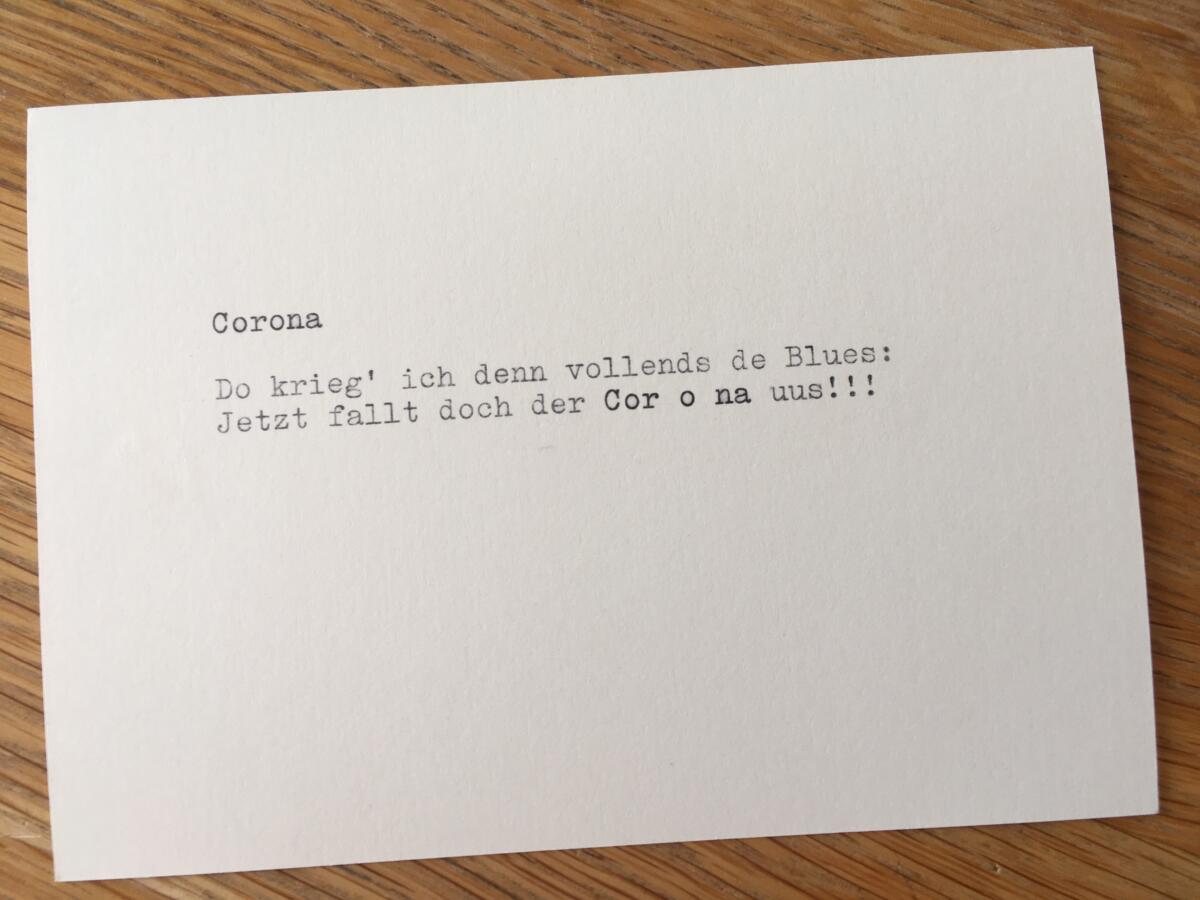 Corona
Do krieg' ich denn vollends de Blues:
Jetzt fallt doch der Cor o na uus!!!